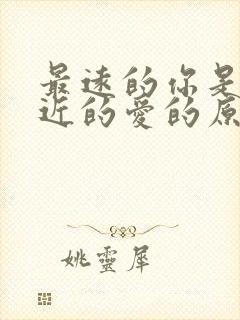 最遠的你是
近的愛的原
姚靈犀